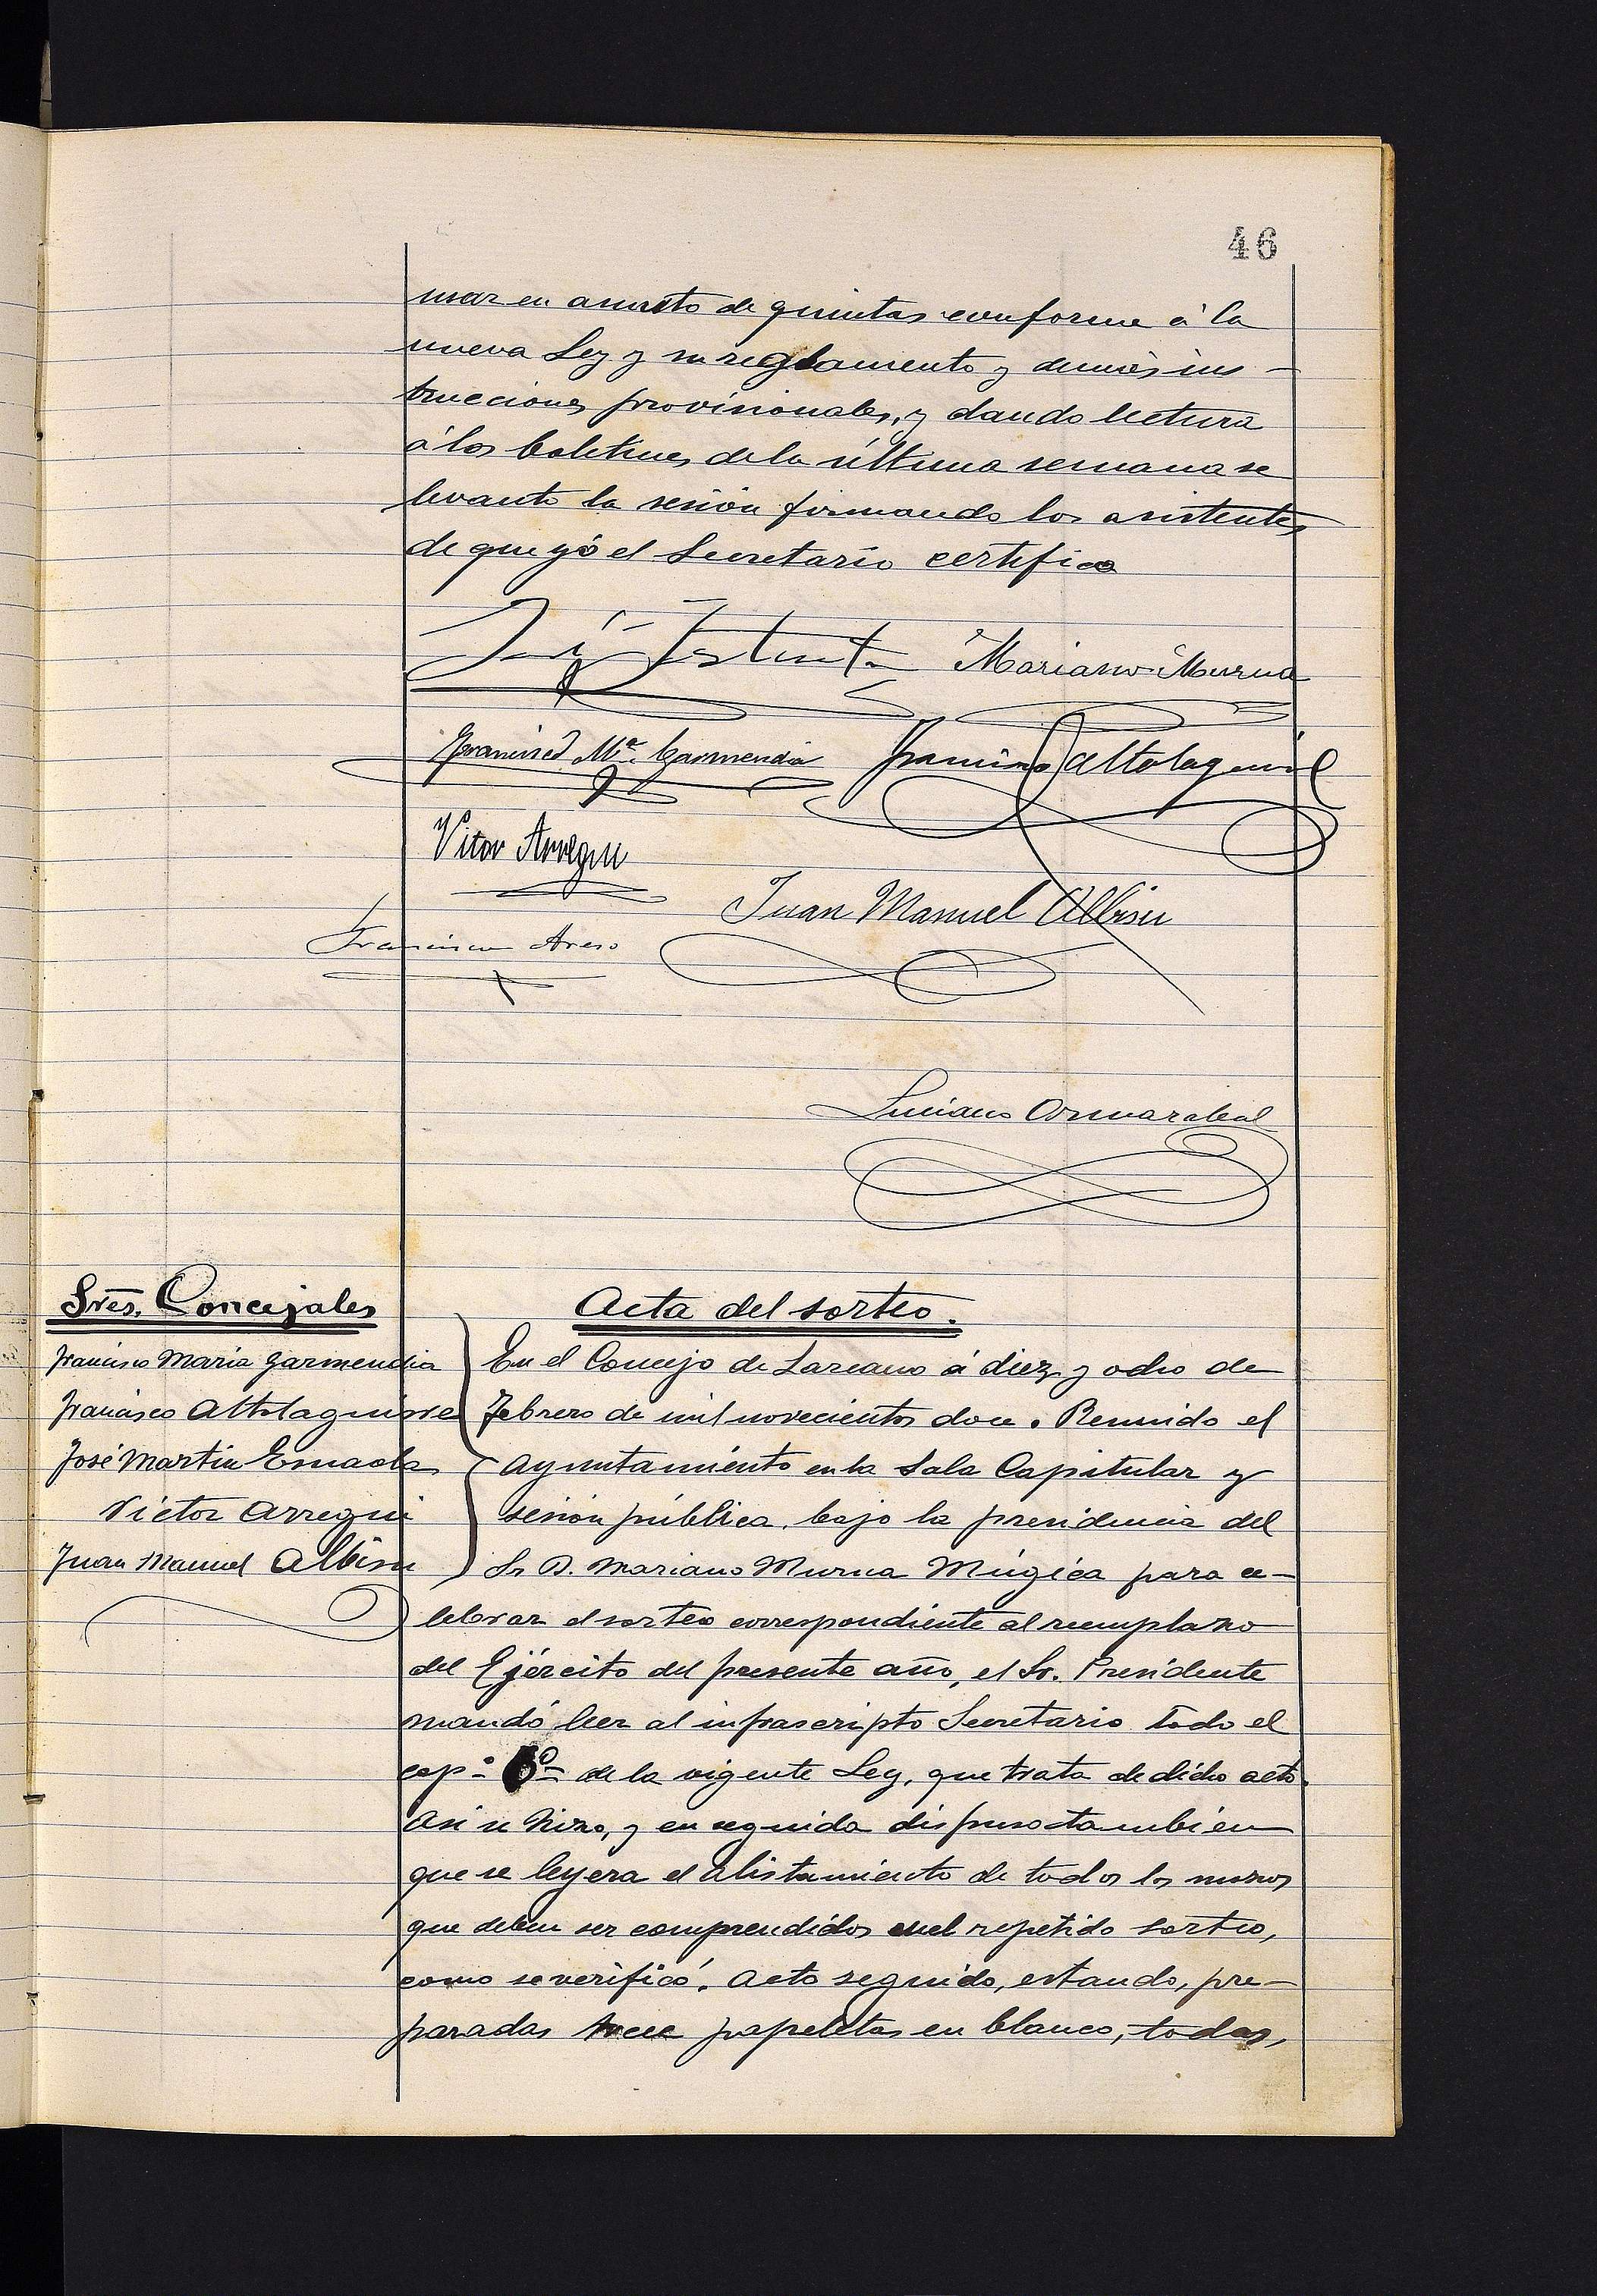 46
usar en asunto de quintas conforme á la
nueva Ley y su reglamento y demás ins-
trucciones provisionales, y dando lectura
á los boletines de la última semana se
levantó la sesión firmando los asistentes
de que yó el Secretario certifico
Mariano Murua
Francisco Mª. Garmendia Francisco Altolaguirre
Vitor Arregui
Juan Manuel Albisu
Francisco Areso
Luciano
Sres. Concejales
Francisco Maria Garmendia
Francisco Altolaguirre
José Martin Esnaola
Victor Arregui
Juan Manuel Albisu
Acta del sorteo.
En el Concejo de Larcano á diez y ocho de
Febrero de mil novecientos doce. Reunido el
Ayuntamiento en la Sala Capitular y
sesión pública, bajo la presidencia del
Sr D. Mariano Murua Múgica para ce-
lebrar el sorteo correspondiente al reemplazo
del Ejército del presente año, el Sr. Presidente
mandó leer al infrascripto Secretario todo el
cap.º 6º de la vigente Ley, que trata de dicho acto.
Asi se hizo, y en seguida dispuso tambien
que se leyera el alistamiento de todos los mozos
que deben ser comprendidos en el repetido sorteo,
como se verificó. Acto seguido, estando, pre-
paradas trece papeletas en blanco, todas,